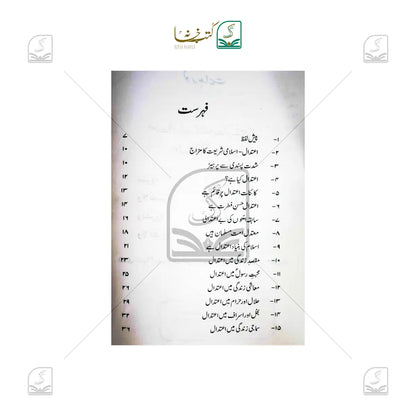 کتب خانہ
فہرست
۱- پیش لفظ ۷
۲- اعتدال - اسلامی شریعت کا مزاج ۱۰
۳- شدت پسندی سے پرہیز ۱۰
۴- اعتدال کیا ہے؟ ۱۲
۵- کائنات اعتدال پر قائم ہے ۱۳
۶- اعتدال حسن فطرت ہے ۱۳
۷- سابقہ امتوں کی بے اعتدالی ۱۶
۸- معتدل امت مسلمان ہیں ۱۹
۹- اسلام کی بنیاد اعتدال ہے
۱۰- مقصد زندگی میں اعتدال ۲۳
۱۱- محبت رسول میں اعتدال ۲۵
۱۲- معاشی زندگی میں اعتدال ۲۶
۱۳- حلال اور حرام میں اعتدال ۲۹
۱۴- بخل اور اسراف میں اعتدال ۳۲
۱۵- سماجی زندگی میں اعتدال ۳۶